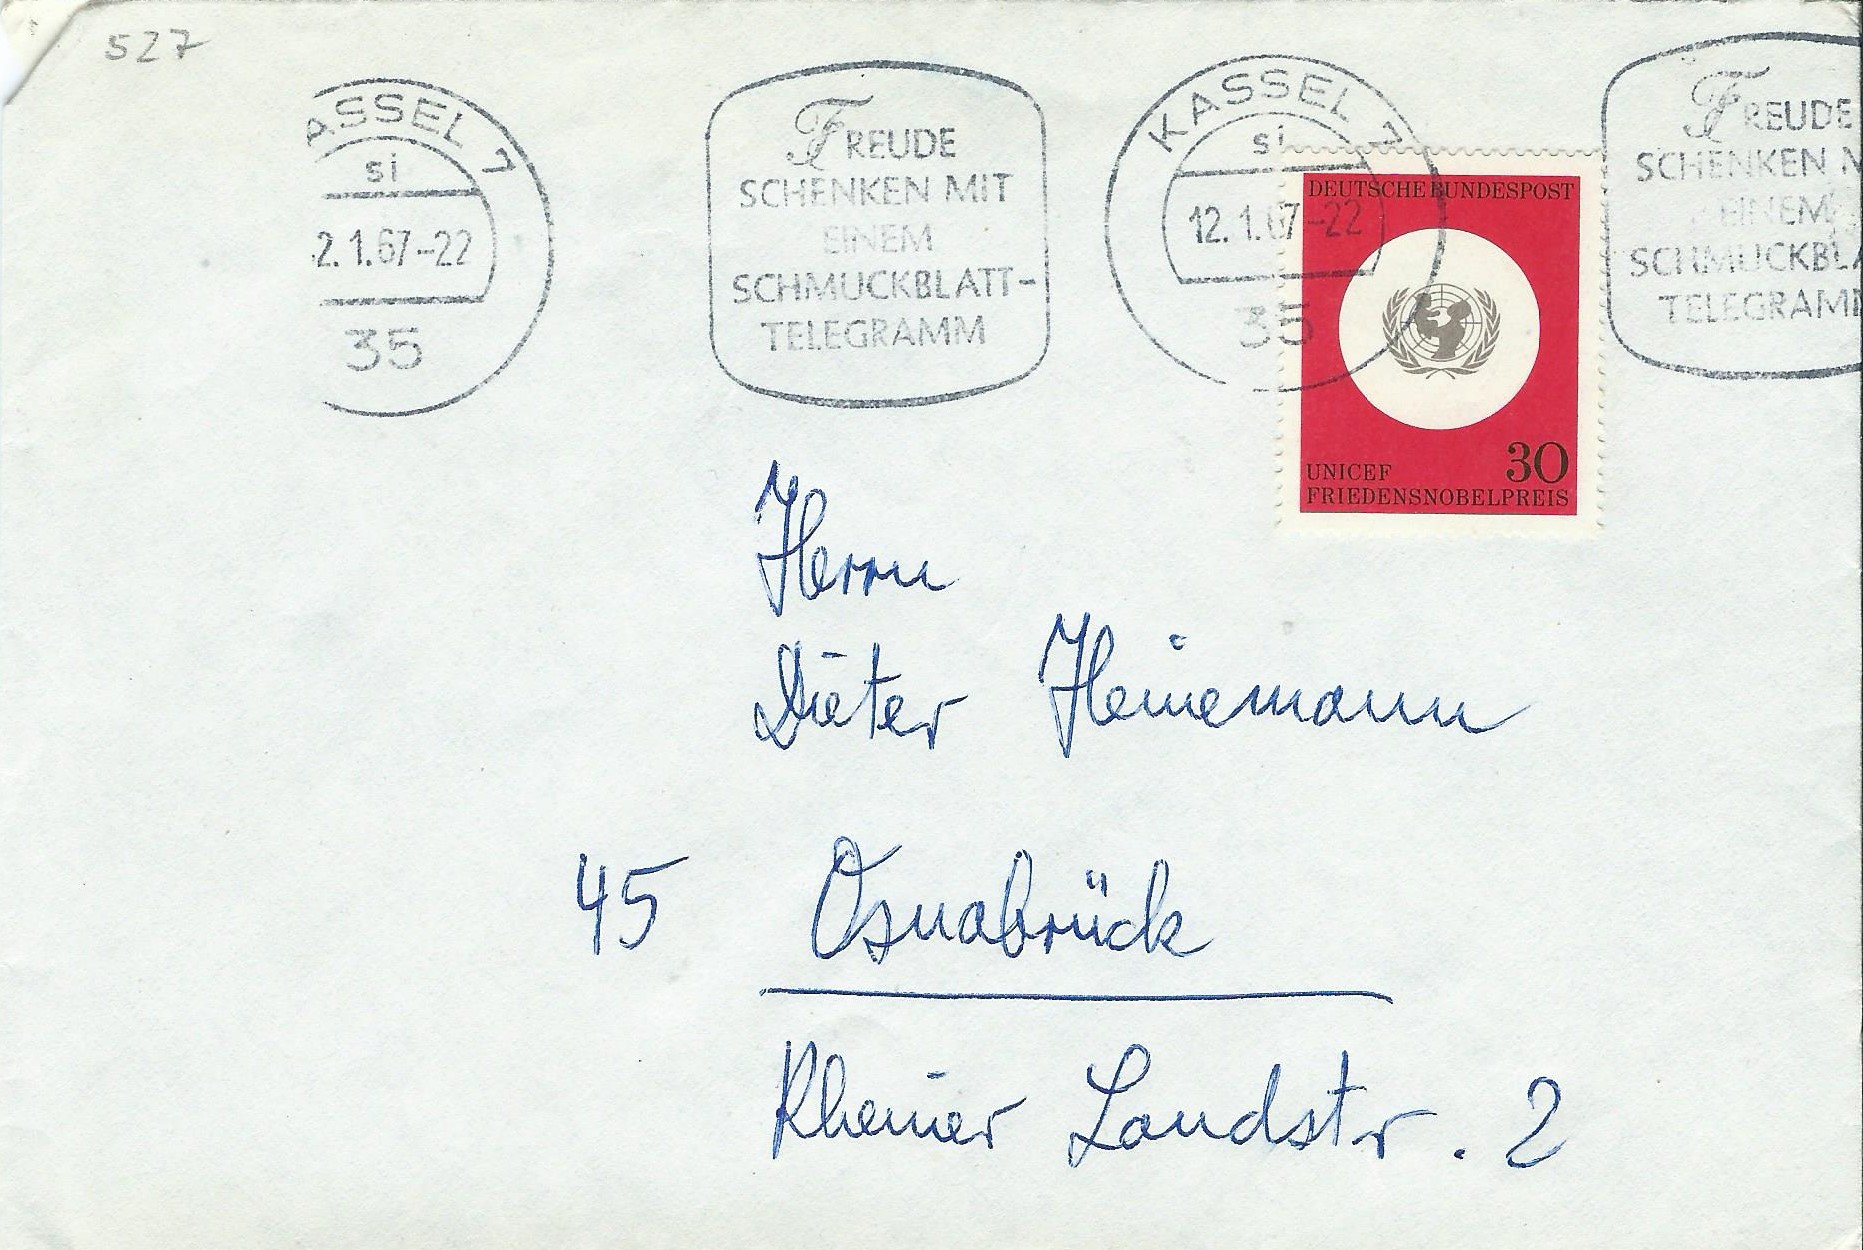 527
ASSEL 7
si
2.1.67-22
35
FREUDE
SCHENKEN MIT
EINEM
SCHMUCKBLATT-
TELEGRAMM
KASSEL 7
si
12.1.67-22
35
DEUTSCHE BUNDESPOST
30
UNICEF
FRIEDENSNOBELPREIS
FREUDE
SCHENKEN M
EINEM
SCHMUCKBLA
TELEGRAMM
Herrn
Dieter Heinemann
45 Osnabrück
Rheiner Landstr. 2